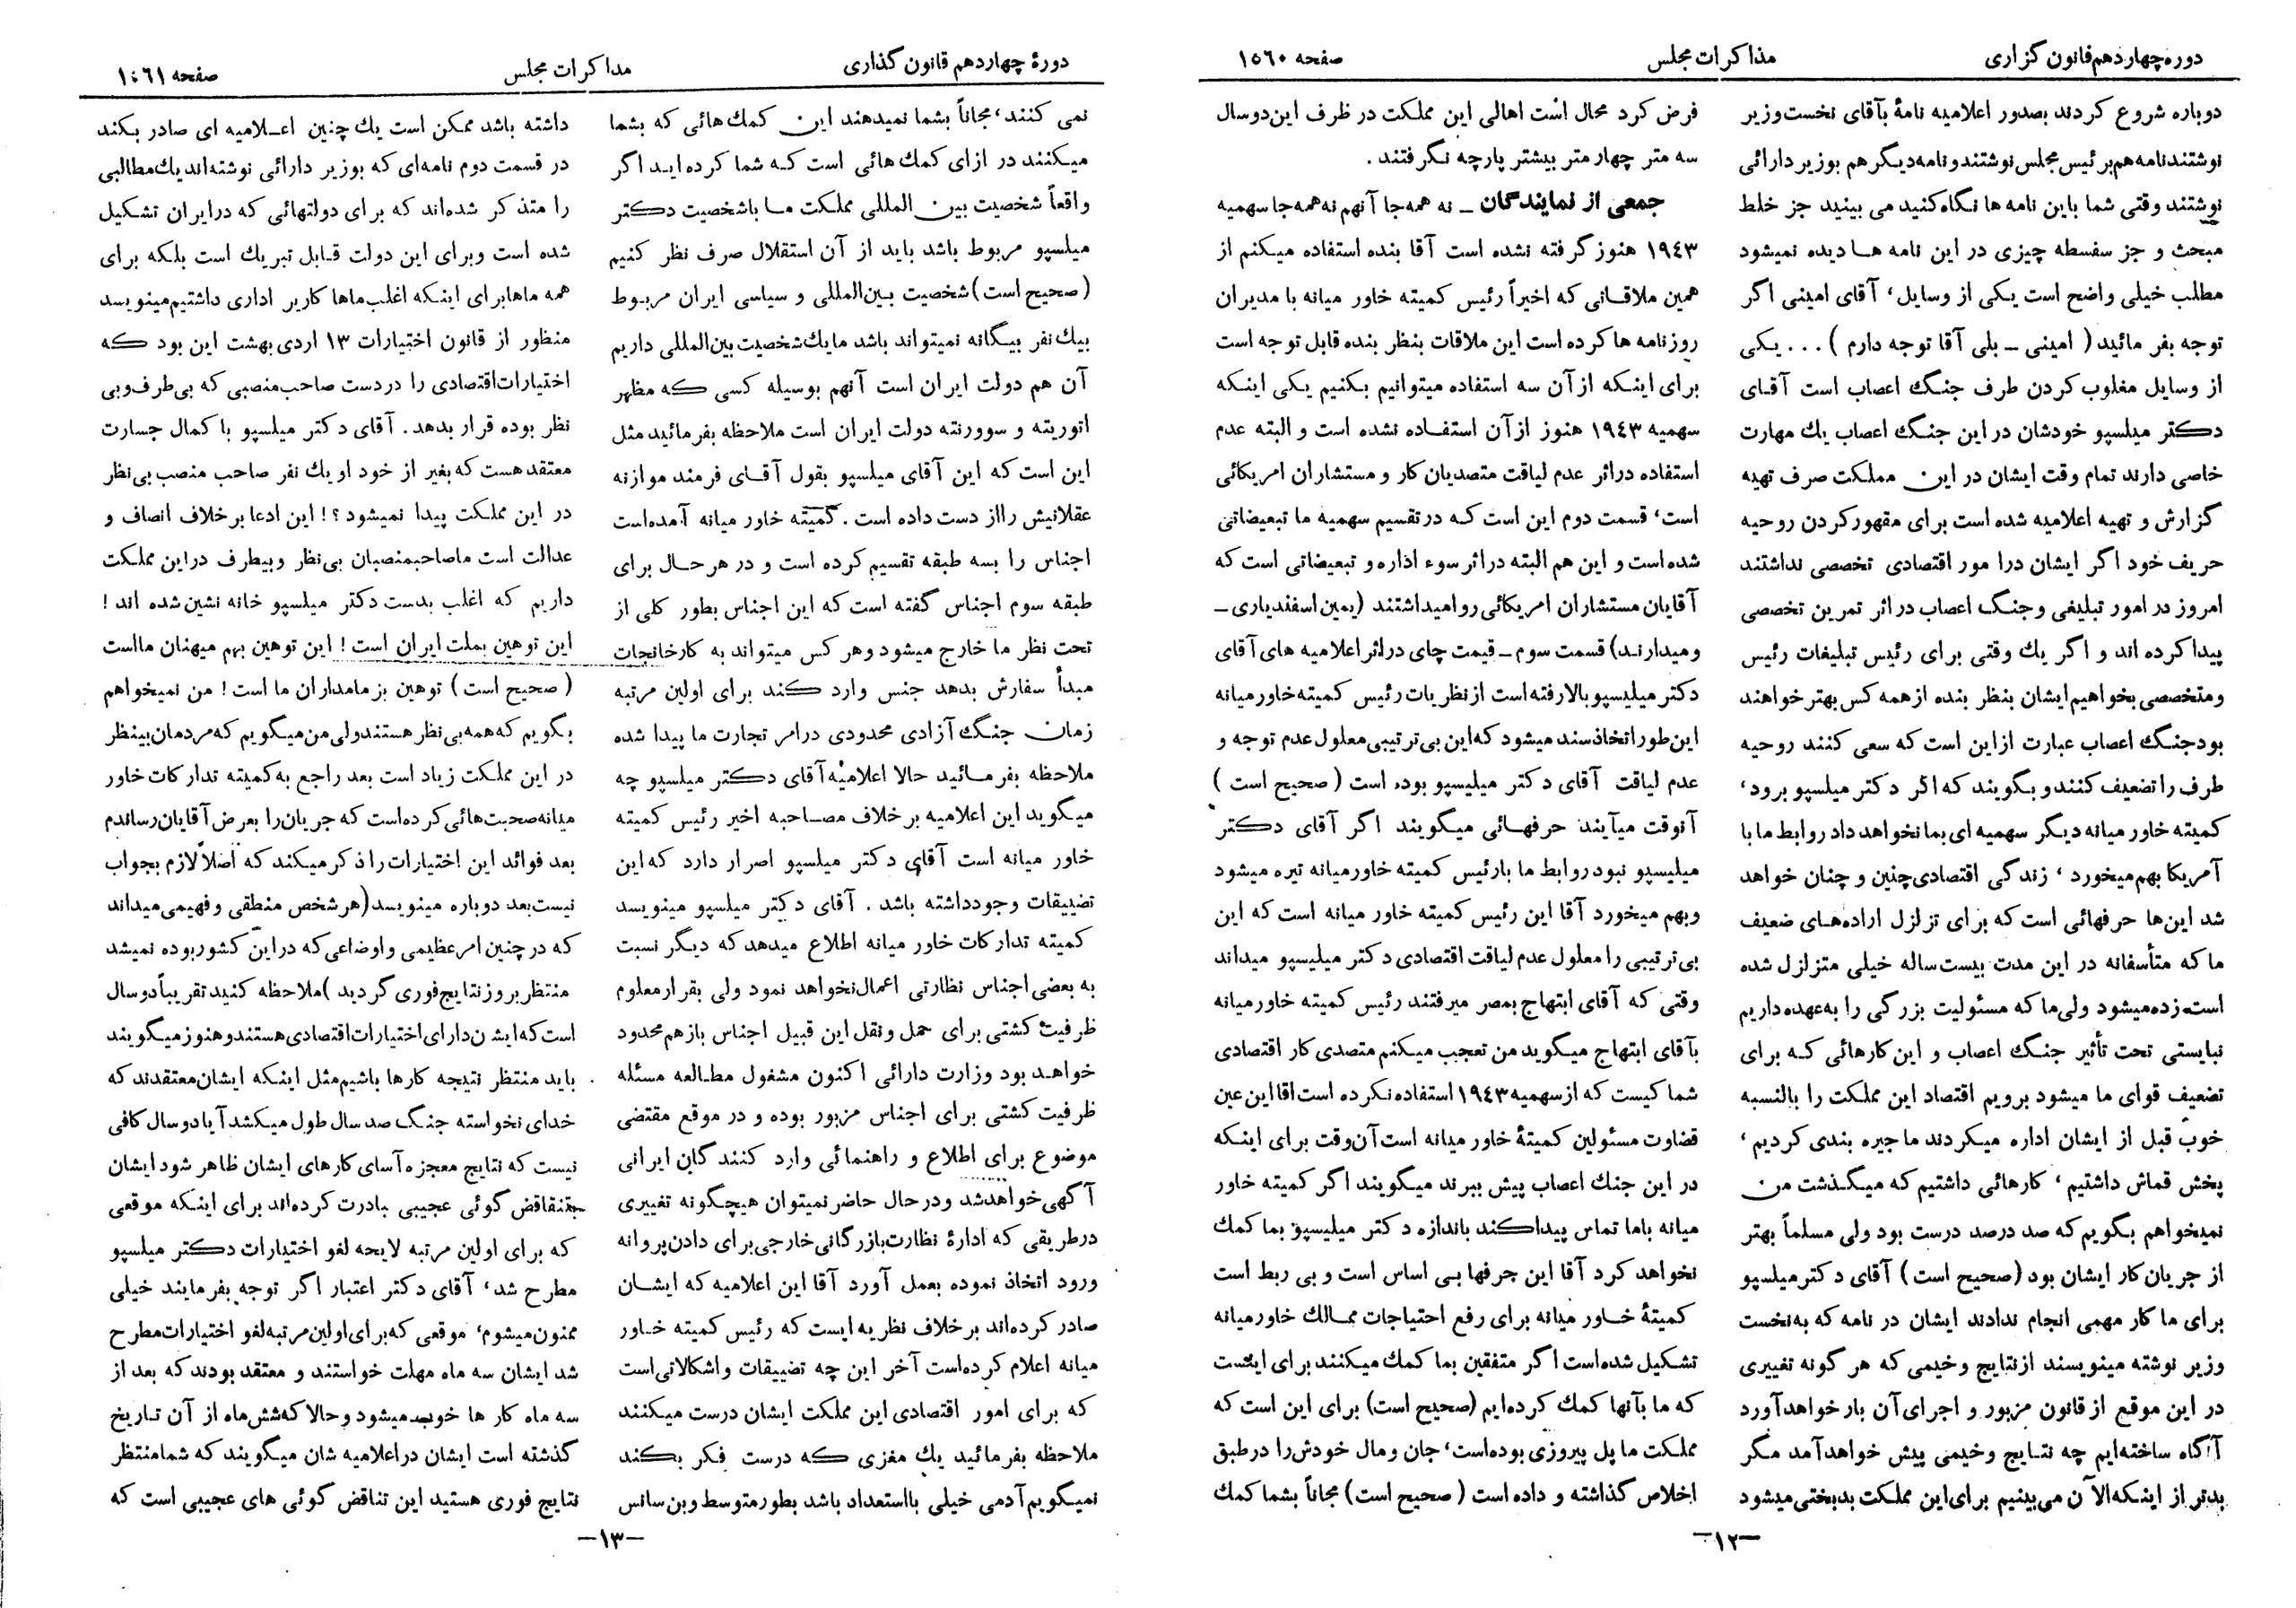 دوره چهاردهم قانون گزاری
مذاکرات مجلس
صفحه ۱۵۶۰
دوباره شروع کردند بصدور اعلامیه نامهٔ بآقای نخست وزیر
نوشتند نامه هم برئیس مجلس نوشتند و نامه دیگر هم بوزیر دارائی
نوشتند وقتی شما باین نامه ها نگاه کنید می بینید جز خلط
مبحث و جز سفسطه چیزی در این نامه ها دیده نمیشود
مطلب خیلی واضح است یکی از وسایل، آقای امینی اگر
توجه بفرمائید (امینی ـ بلی آقا توجه دارم) ... یکی
از وسایل مغلوب کردن طرف جنگ اعصاب است آقای
دکتر میلسپو خودشان در این جنگ اعصاب یك مهارت
خاصی دارند تمام وقت ایشان در این مملکت صرف تهیه
گزارش و تهیه اعلامیه شده است برای مقهور کردن روحیه
حریف خود اگر ایشان درا مور اقتصادی تخصصی نداشتند
امروز در امور تبلیغی و جنگ اعصاب در اثر تمرین تخصصی
پیدا کرده اند و اگر یك وقتی برای رئیس تبلیغات رئیس
ومتخصصی بخواهیم ایشان بنظر بنده از همه کس بهتر خواهند
بود جنگ اعصاب عبارت از این است که سعی کنند روحیه
طرف را تضعیف کنند و بگویند که اگر دکتر میلسپو برود،
کمیته خاور میانه دیگر سهمیه ای بما نخواهد داد روابط ما با
آمریکا بهم میخورد، زندگی اقتصادی چنین و چنان خواهد
شد این‌ها حرفهائی است که برای تزلزل اراده‌های ضعیف
ما که متأسفانه در این مدت بیست ساله خیلی متزلزل شده
است زده میشود ولی ما که مسئولیت بزرگی را به عهده داریم
نبایستی تحت تأثیر جنگ اعصاب و این کارهائی که برای
تضعیف قوای ما میشود برویم اقتصاد این مملکت را بالنسبه
خوب قبل از ایشان اداره میکردند ما جیره بندی کردیم،
پخش قماش داشتیم، کارهائی داشتیم که میگذشت من
نمیخواهم بگویم که صد درصد درست بود ولی مسلماً بهتر
از جریان کار ایشان بود (صحیح است) آقای دکتر میلسپو
برای ما کار مهمی انجام ندادند ایشان در نامه که به نخست
وزیر نوشته مینویسند از نتایج وخیمی که هر گونه تغییری
در این موقع از قانون مزبور و اجرای آن بار خواهد آورد
آگاه ساخته‌ایم چه نتایج وخیمی پیش خواهد آمد مگر
بدتر از اینکه الآن می‌بینیم برای این مملکت بدبختی میشود
فرض کرد محال است اهالی این مملکت در ظرف این دو سال
سه متر چهار متر بیشتر پارچه نگرفتند.
جمعی از نمایندگان ـ نه همه جا آنهم نه همه جا سهمیه
۱۹٤۳ هنوز گرفته نشده است آقا بنده استفاده میکنم از
همین ملاقاتی که اخیراً رئیس کمیته خاور میانه با مدیران
روزنامه ها کرده است این ملاقات بنظر بنده قابل توجه است
برای اینکه از آن سه استفاده میتوانیم بکنیم یکی اینکه
سهمیه ۱۹٤۳ هنوز از آن استفاده نشده است و البته عدم
استفاده در اثر عدم لیاقت متصدیان کار و مستشاران امریکائی
است، قسمت دوم این است که در تقسیم سهمیه ما تبعیضاتی
شده است و این هم البته در اثر سوء اداره و تبعیضاتی است که
آقایان مستشاران امریکائی روا میداشتند (یمین اسفندیاری ـ
و میدارند) قسمت سوم ـ قیمت چای در اثر اعلامیه های آقای
دکتر میلیسپو بالا رفته است از نظریات رئیس کمیته خاور میانه
این طور اتخاذ سند میشود که این بی ترتیبی معلول عدم توجه و
عدم لیاقت آقای دکتر میلیسپو بوده است (صحیح است)
آنوقت میآیند حرفهائی میگویند اگر آقای دکتر
میلیسپو نبود روابط ما با رئیس کمیته خاور میانه تیره میشود
وبهم میخورد آقا این رئیس کمیته خاور میانه است که این
بی ترتیبی را معلول عدم لیاقت اقتصادی دکتر میلیسپو میداند
وقتی که آقای ابتهاج بمصر میرفتند رئیس کمیته خاور میانه
بآقای ابتهاج میگوید من تعجب میکنم متصدی کار اقتصادی
شما کیست که از سهمیه ۱۹٤۳ استفاده نکرده است آقا این عین
قضاوت مسئولین کمیتهٔ خاور میانه است آن وقت برای اینکه
در این جنك اعصاب پیش ببرند میگویند اگر کمیته خاور
میانه باما تماس پیدا کند باندازه دکتر میلیسپو بما کمك
نخواهد کرد آقا این حرفها بی اساس است و بی ربط است
کمیتهٔ خاور میانه برای رفع احتیاجات ممالك خاور میانه
تشکیل شده است اگر متفقین بما کمك میکنند برای اینست
که ما بآنها کمك کرده‌ایم (صحیح است) برای این است که
مملکت ما پل پیروزی بوده است، جان و مال خودش را در طبق
اخلاص گذاشته و داده است (صحیح است) مجاناً بشما کمك
ـ۱۲ـ
دورهٔ چهاردهم قانون گذاری
مذاکرات مجلس
صفحه ۱۵۶۱
نمی کنند، مجاناً بشما نمیدهند این کمك هائی که بشما
میکنند در ازای کمك هائی است که شما کرده اید اگر
واقعاً شخصیت بین المللی مملکت ما با شخصیت دکتر
میلسپو مربوط باشد باید از آن استقلال صرف نظر کنیم
(صحیح است) شخصیت بین‌المللی و سیاسی ایران مربوط
بیك نفر بیگانه نمیتواند باشد ما یك شخصیت بین‌المللی داریم
آن هم دولت ایران است آنهم بوسیله کسی که مظهر
اتوریته و سوورنته دولت ایران است ملاحظه بفرمائید مثل
این است که این آقای میلسپو بقول آقای فرمند موازنه
عقلانیش را از دست داده است. کمیته خاور میانه آمده است
اجناس را بسه طبقه تقسیم کرده است و در هر حال برای
طبقه سوم اجناس گفته است که این اجناس بطور کلی از
تحت نظر ما خارج میشود وهر کس میتواند به کارخانجات
مبدأ سفارش بدهد جنس وارد کند برای اولین مرتبه
زمان جنگ آزادی محدودی در امر تجارت ما پیدا شده
ملاحظه بفرمائید حالا اعلامیهٔ آقای دکتر میلسپو چه
میگوید این اعلامیه بر خلاف مصاحبه اخیر رئیس کمیته
خاور میانه است آقای دکتر میلسپو اصرار دارد که این
تضییقات وجود داشته باشد. آقای دکتر میلسپو مینویسد
کمیته تدارکات خاور میانه اطلاع میدهد که دیگر نسبت
به بعضی اجناس نظارتی اعمال نخواهد نمود ولی بقرار معلوم
ظرفیت کشتی برای حمل و نقل این قبیل اجناس باز هم محدود
خواهد بود وزارت دارائی اکنون مشغول مطالعه مسئله
ظرفیت کشتی برای اجناس مزبور بوده و در موقع مقتضی
موضوع برای اطلاع و راهنمائی وارد کنندگان ایرانی
آگهی خواهد شد ودر حال حاضر نمیتوان هیچگونه تغییری
در طریقی که ادارهٔ نظارت بازرگانی خارجی برای دادن پروانه
ورود اتخاذ نموده بعمل آورد آقا این اعلامیه که ایشان
صادر کرده‌اند بر خلاف نظریه ایست که رئیس کمیته خاور
میانه اعلام کرده است آخر این چه تضییقات و اشکالاتی است
که برای امور اقتصادی این مملکت ایشان درست میکنند
ملاحظه بفرمائید یك مغزی که درست فکر بکند
نمیگویم آدمی خیلی با استعداد باشد بطور متوسط و بن سانس
داشته باشد ممکن است یك چنین اعلامیه ای صادر بکند
در قسمت دوم نامه‌ای که بوزیر دارائی نوشته‌اند یك مطالبی
را متذکر شده‌اند که برای دولتهائی که در ایران تشکیل
شده است وبرای این دولت قابل تبریك است بلکه برای
همه ماها برای اینکه اغلب ماها کاریر اداری داشتیم مینویسد
منظور از قانون اختیارات ۱۳ اردی بهشت این بود که
اختیارات اقتصادی را در دست صاحب منصبی که بی طرف و بی
نظر بوده قرار بدهد. آقای دکتر میلسپو با کمال جسارت
معتقد هست که بغیر از خود او یك نفر صاحب منصب بی نظر
در این مملکت پیدا نمیشود؟! این ادعا بر خلاف انصاف و
عدالت است ما صاحبمنصبان بی نظر و بیطرف در این مملکت
داریم که اغلب بدست دکتر میلسپو خانه نشین شده اند!
این توهین بملت ایران است! این توهین بهم میهنان ما است
(صحیح است) توهین بزمامداران ما است! من نمیخواهم
بگویم که همه بی نظر هستند ولی من میگویم که مردمان بینظر
در این مملکت زیاد است بعد راجع به کمیته تدارکات خاور
میانه صحبت هائی کرده است که جریان را بعرض آقایان رساندم
بعد فوائد این اختیارات را ذکر میکند که اصلاً لازم بجواب
نیست بعد دوباره مینویسد (هر شخص منطقی و فهیمی میداند
که در چنین امر عظیمی و اوضاعی که در این کشور بوده نمیشد
منتظر بروز نتایج فوری گردید) ملاحظه کنید تقریباً دو سال
است که ایشان دارای اختیارات اقتصادی هستند و هنوز میگویند
باید منتظر نتیجه کارها باشیم مثل اینکه ایشان معتقدند که
خدای نخواسته جنگ صد سال طول میکشد آیا دو سال کافی
نیست که نتایج معجزه آسای کارهای ایشان ظاهر شود ایشان
بتناقض گوئی عجیبی مبادرت کرده‌اند برای اینکه موقعی
که برای اولین مرتبه لایحه لغو اختیارات دکتر میلسپو
مطرح شد، آقای دکتر اعتبار اگر توجه بفرمایند خیلی
ممنون میشوم، موقعی که برای اولین مرتبه لغو اختیارات مطرح
شد ایشان سه ماه مهلت خواستند و معتقد بودند که بعد از
سه ماه کار ها خوب میشود و حالا که شش ماه از آن تاریخ
گذشته است ایشان در اعلامیه شان میگویند که شما منتظر
نتایج فوری هستید این تناقض گوئی های عجیبی است که
ـ۱۳ـ